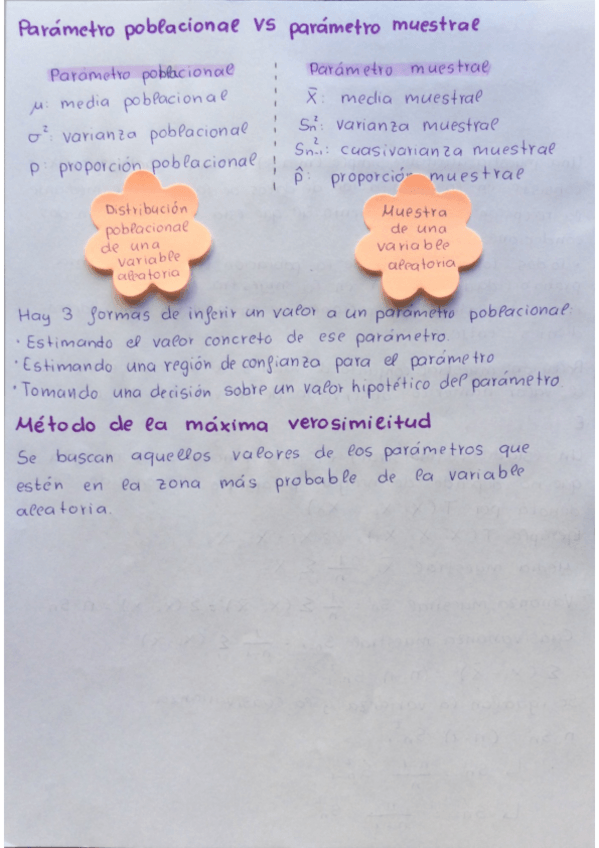 Parámetro poblacional VS parámetro muestral
Parámetro poblacional
μ: media poblacional
σ²: varianza poblacional
p: proporción poblacional
Distribución
poblacional
de una
variable
aleatoria
Parámetro muestral
X̄: media muestral
Sn²: varianza muestral
Sn-1²: cuasivarianza muestral
p̂: proporción muestral
Muestra
de una
variable
aleatoria
Hay 3 formas de inferir un valor a un parámetro poblacional:
· Estimando el valor concreto de ese parámetro.
· Estimando una región de confianza para el parámetro
· Tomando una decisión sobre un valor hipotético del parámetro.
Método de la máxima verosimilitud
Se buscan aquellos valores de los parámetros que
estén en la zona más probable de la variable
aleatoria.